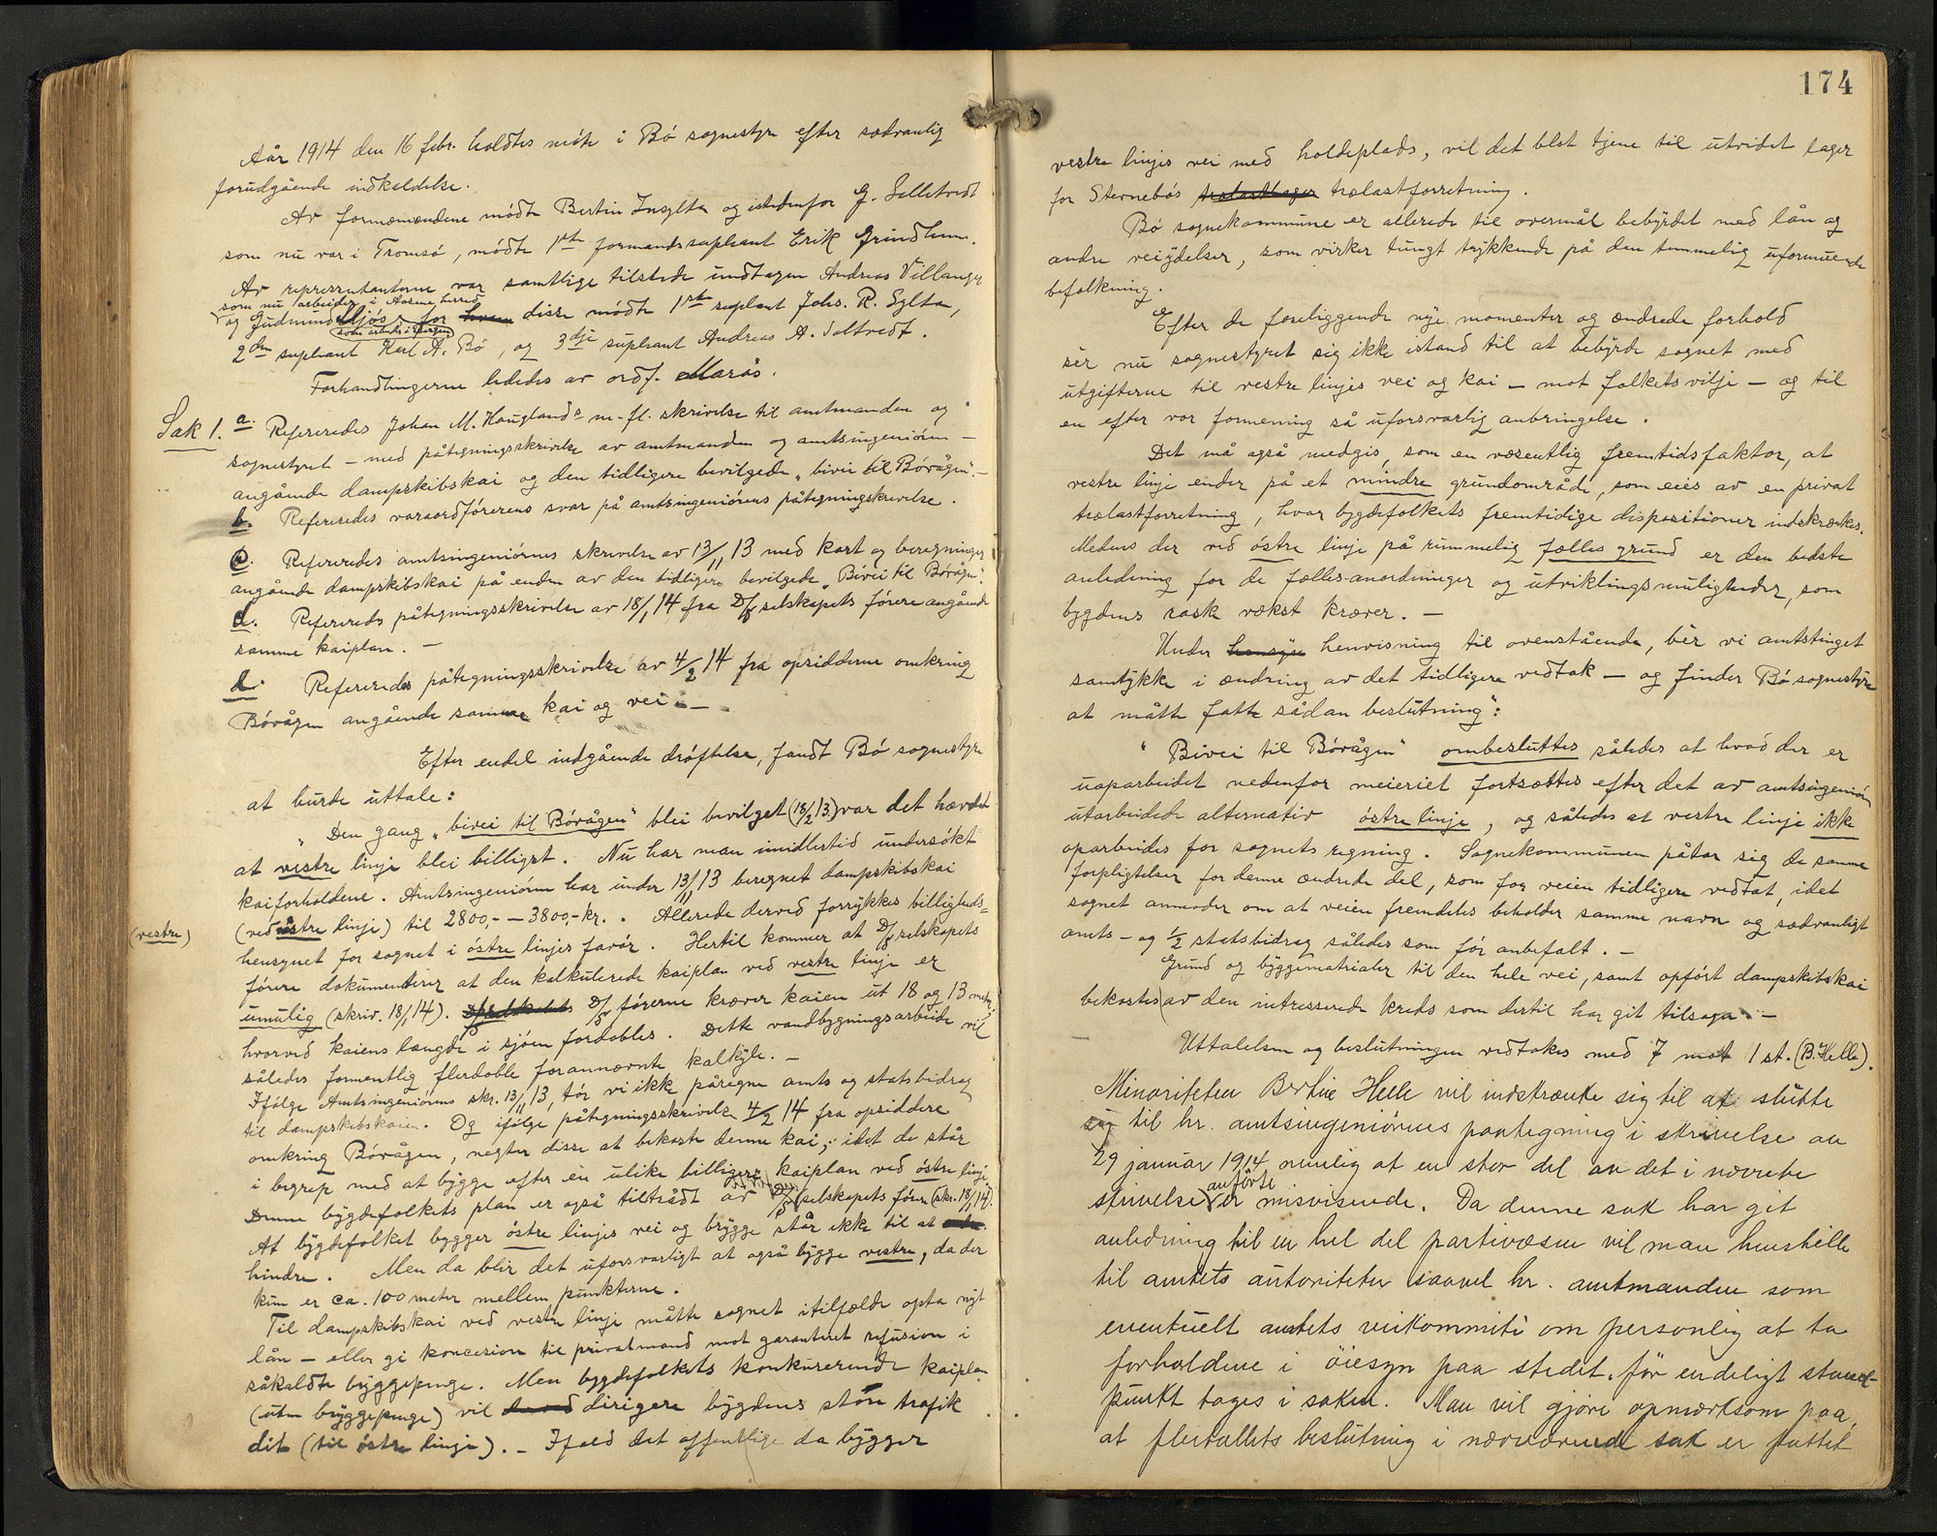 Aår 1914 den 16 febr. holdtes móte i Bó sognestyre efter sædvanlig
forudgående indkaldelse.
Av formænndene módte Bertin Insylta og istedenfor G. Selletvedt
som nú var i Tromsó, módte 1ste formandssupleant Erik Grindheim.
Av representanterne var samtlige tilstede undtagen Andreas Villanger
som nú arbeider i Aasene herred
og Gudmund Mjós. for disse módte 1ste supleant Johs. R. Sylta,
som arbeider i Bergen
2den supleant Karl A. Bó, og 3dje supleant Andreas A. Saltvedt.
Forhandlingerne lededes av ordf. Marås.
Sak 1. a. Refereredes Johan M. Hauglands m. fl. skrivelse til amtmanden og
sognestyret – med påtegningsskrivelse av amtmanden og amtsingenióren –
angående dampskibskai og den tidligere bevilgede „bivei til Bórågen" –
b. Refereredes varaordfórerens svar på amtsingeniórens påtegningskrivelse.
c. Refereredes amtsingeniórnes skrivelse av 13/11 13 med kart og beregninger
angående dampskibskai på enden av den tidligere bevilgede „Bivei til Bórågen".
d. Refereredes påtegningsskrivelse av 18/1 14 fra D/S selskapets fórere angående
samme kaiplan. –
e. Refereredes påtegningsskrivelse av 4/2 14 fra opsidderne omkring
Bórågen angående samme kai og vei. –
Efter endel indgående dróftelse, fandt Bó sognestyre
at burde uttale:
„Den gang „bivei til Bórågen" blei bevilget (18/2 13) var det hævdet
at vestre linje blei billigst. Nú har man imidlertid undersókt
kaiforholdene. Amtsingenióren har under 13/11 13 beregnet dampskibskai
(vestre)
(ved østre linje) til 2800,- – 3800,- kr. . Allerede derved forrykkes billigheds-
hensynet for sognet i óstre linjes favór. Hertil kommer at D/S selskapets
fórere dokumenterer at den kalkulerede kaiplan ved vestre linje er
umulig (skriv. 18/1 14). D/S fórerne kræver kaien ut 18 og 13 meter,
hvorved kaiens længde i sjóen fordobles. Dette vandbygningsarbeide vil
således formentlig flerdoble forannævnte kalkyle. –
Ifólge Amtsingeniórens skr. 13/11 13, tór vi ikke påregne amts og statsbidrag
til dampskibskaien. Og ifólge påtegningsskrivelse 4/2 14 fra opsiddere
omkring Bórågen, negter disse at bekoste denne kai; idet de står
i begrep med at bygge efter en ulike billigere kaiplan ved óstre linje.
Denne bygdefolkets plan er også tiltrådt av D/S selskapets fórere (skr. 18/1 14).
At bygdefolket bygger óstre linjes vei og brygge står ikke til at
hindre. Men da blir det uforsvarligt at også bygge vestre, da der
kun er ca. 100 meter mellem punkterne.
Til dampskibskai ved vestre linje måtte sognet itilfælde opta nyt
lån – eller gi koncesion til privatmand mot garanteret refusion i
såkaldte bryggepenge. Men bygdefolkets konkurerende kaiplan
(uten bryggepenge) vil dirigere bygdens store trafik
dit (til óstre linje). – Ifald det offentlige da bygger
174
vestre linjes vei med holdeplads, vil det blot tjene til utvidet lager
for Stornebós trælastforretning.
Bó sognekommune er allerede til overmål bebyrdet med lån og
andre veiydelser, som virker tungt trykkende på den temmelig uformuende
befolkning.
Efter de foreliggende nye momenter og ændrede forhold
sér nú sognestyret sig ikke istand til at bebyrde sognet med
utgifterne til vestre linjes vei og kai – mot folkets vilje – og til
en efter vor formening så uforsvarlig anbringelse.
Det må også medgis, som en væsentlig fremtidsfaktor, at
vestre linje ender på et mindre grundområde, som eies av en privat
trælastforretning, hvor bygdefolkets fremtidige dispositioner indskrænkes.
Medens der ved óstre linje på rummelig fælles grund er den bedste
anledning for de fælles-anordninger og utviklingsmuligheder, som
bygdens rask vækst kræver. –
Under henvisning til ovenstående, bér vi amtstinget
samtykke i ændring av det tidligere vedtak – og finder Bó sognestyre
at måtte fatte sådan beslutning":
„Bivei til Bórågen" ombesluttes således at hvad der er
uoparbeidet nedenfor meieriet fortsættes efter det av amtsingeniór
utarbeidede alternativ óstre linje, og således at vestre linje ikke
oparbeides for sognets regning. Sognekommunen påtar sig de samme
forpligtelser for denne ændrede del, som for veien tidligere vedtat, idet
sognet anmoder om at veien fremdeles beholder samme navn og sædvanligt
amts- og ½ statsbidrag således som fór anbefalt. –
Grund og byggematrialer til den hele vei, samt opfórt dampskibskai
bekostes av den intresserede kreds som dertil har git tilsagn. –
Uttalelsen og beslutningen vedtokes med 7 mot 1 st. (B. Helle).
Minoriteten Bertine Helle vil indskrænke sig til at slutte
sig til hr. amtsingeniörens paategning i skrivelse av
29 januar 1914 nemlig at en stor del av det i nævnte
skrivelse anförte er misvisende. Da denne sak har git
anledning til en hel del partivæsen vil man henstille
til amtets autoriteter saavel hr. amtmanden som
eventuelt amtets veikommité om personlig at ta
forholdene i öiesyn paa stedet. för endeligt stand-
punkt tages i saken. Man vil gjöre opmerksom paa,
at flertallets beslutning i nærværende sak er fattet